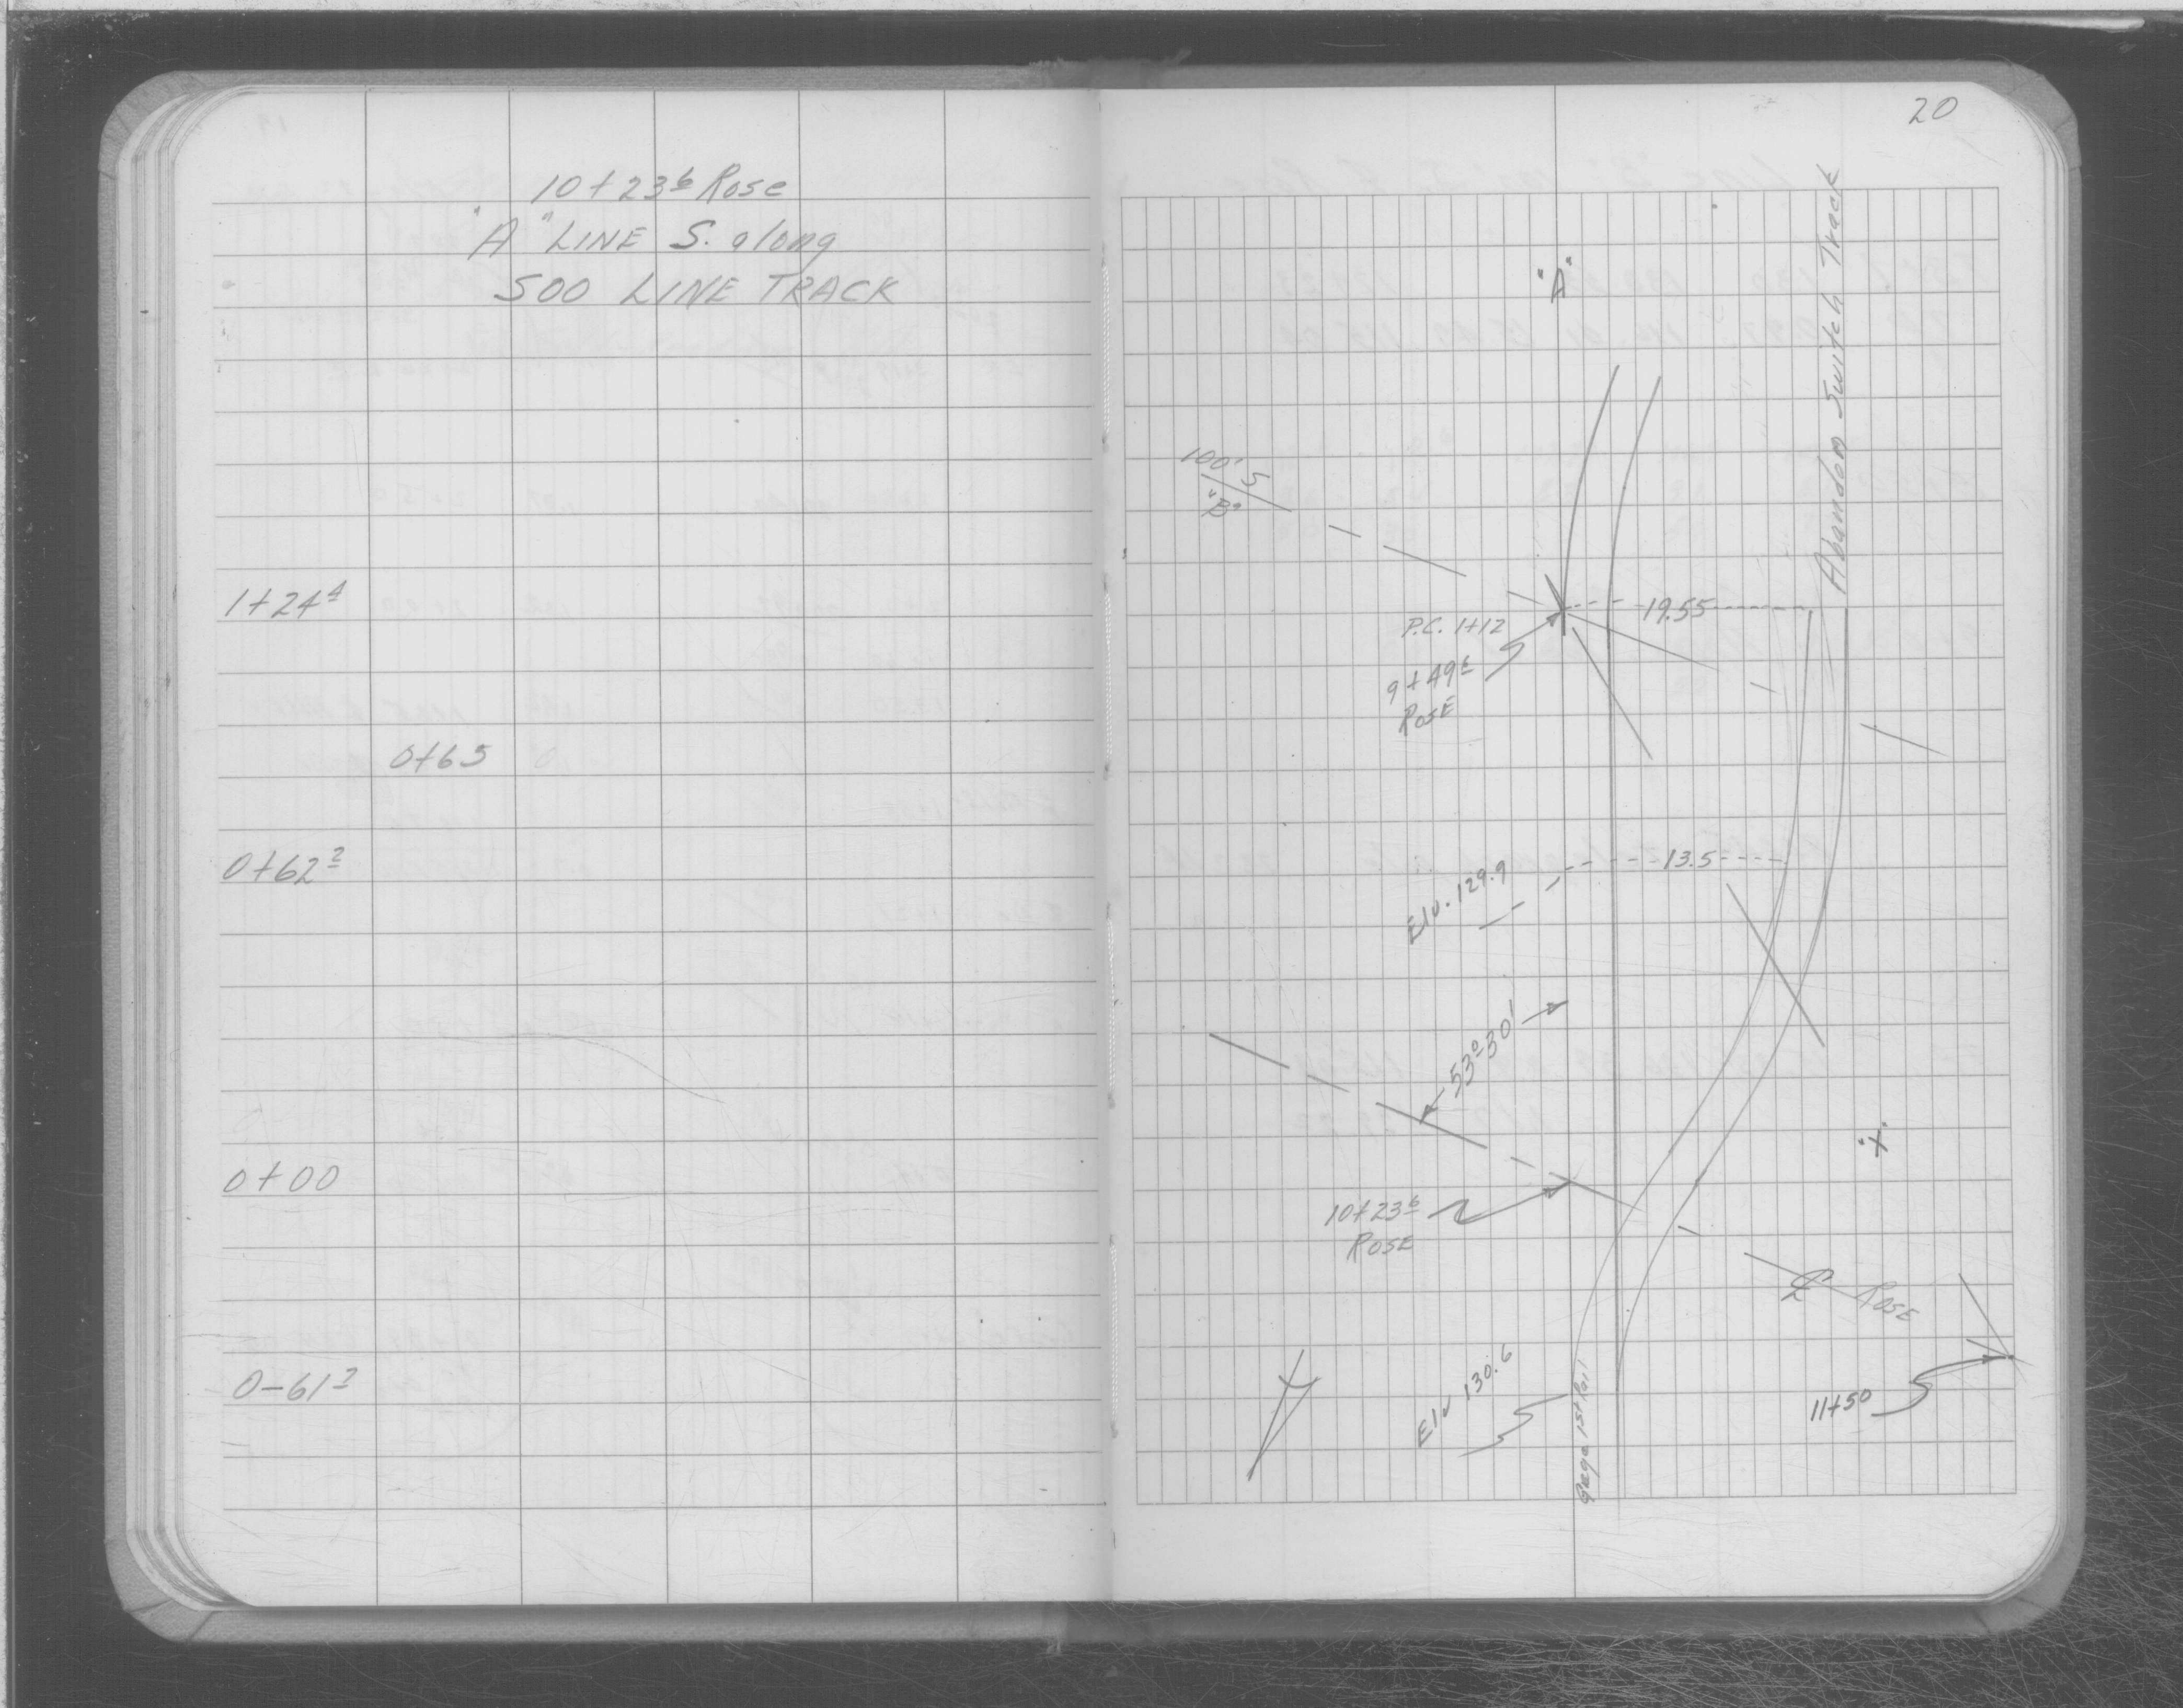 10+23⁶ Rose
"A" LINE S. along
SOO LINE TRACK
1+24⁴
0+65
0+62²
0+00
0-61²
20
"A"
Abandon Switch Track
100' S
"B"
19.55
P.C. 1+12
9+49
ROSE
13.5
Elv. 129.9
53°-30'
"X"
10+23⁶
ROSE
℄ ROSE
Elv 130.6
Gage 1st Rail
11+50